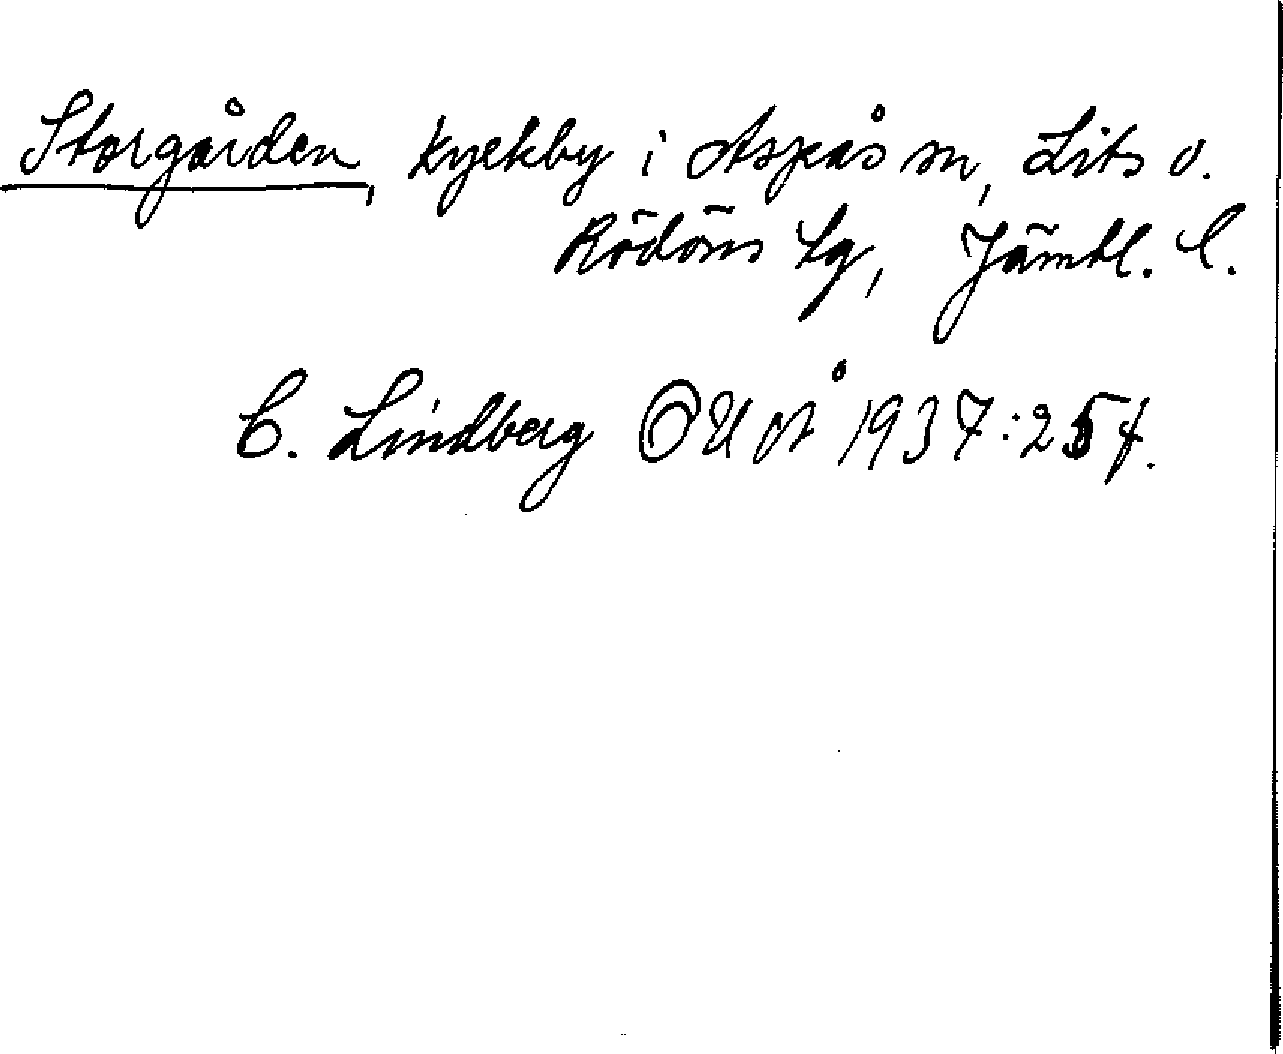 Storgården, kyrkby i Aspås sn, Lits o.
Rödöns tg, Jämtl. l.
C. Lindberg OUÅ 1937:25 f.